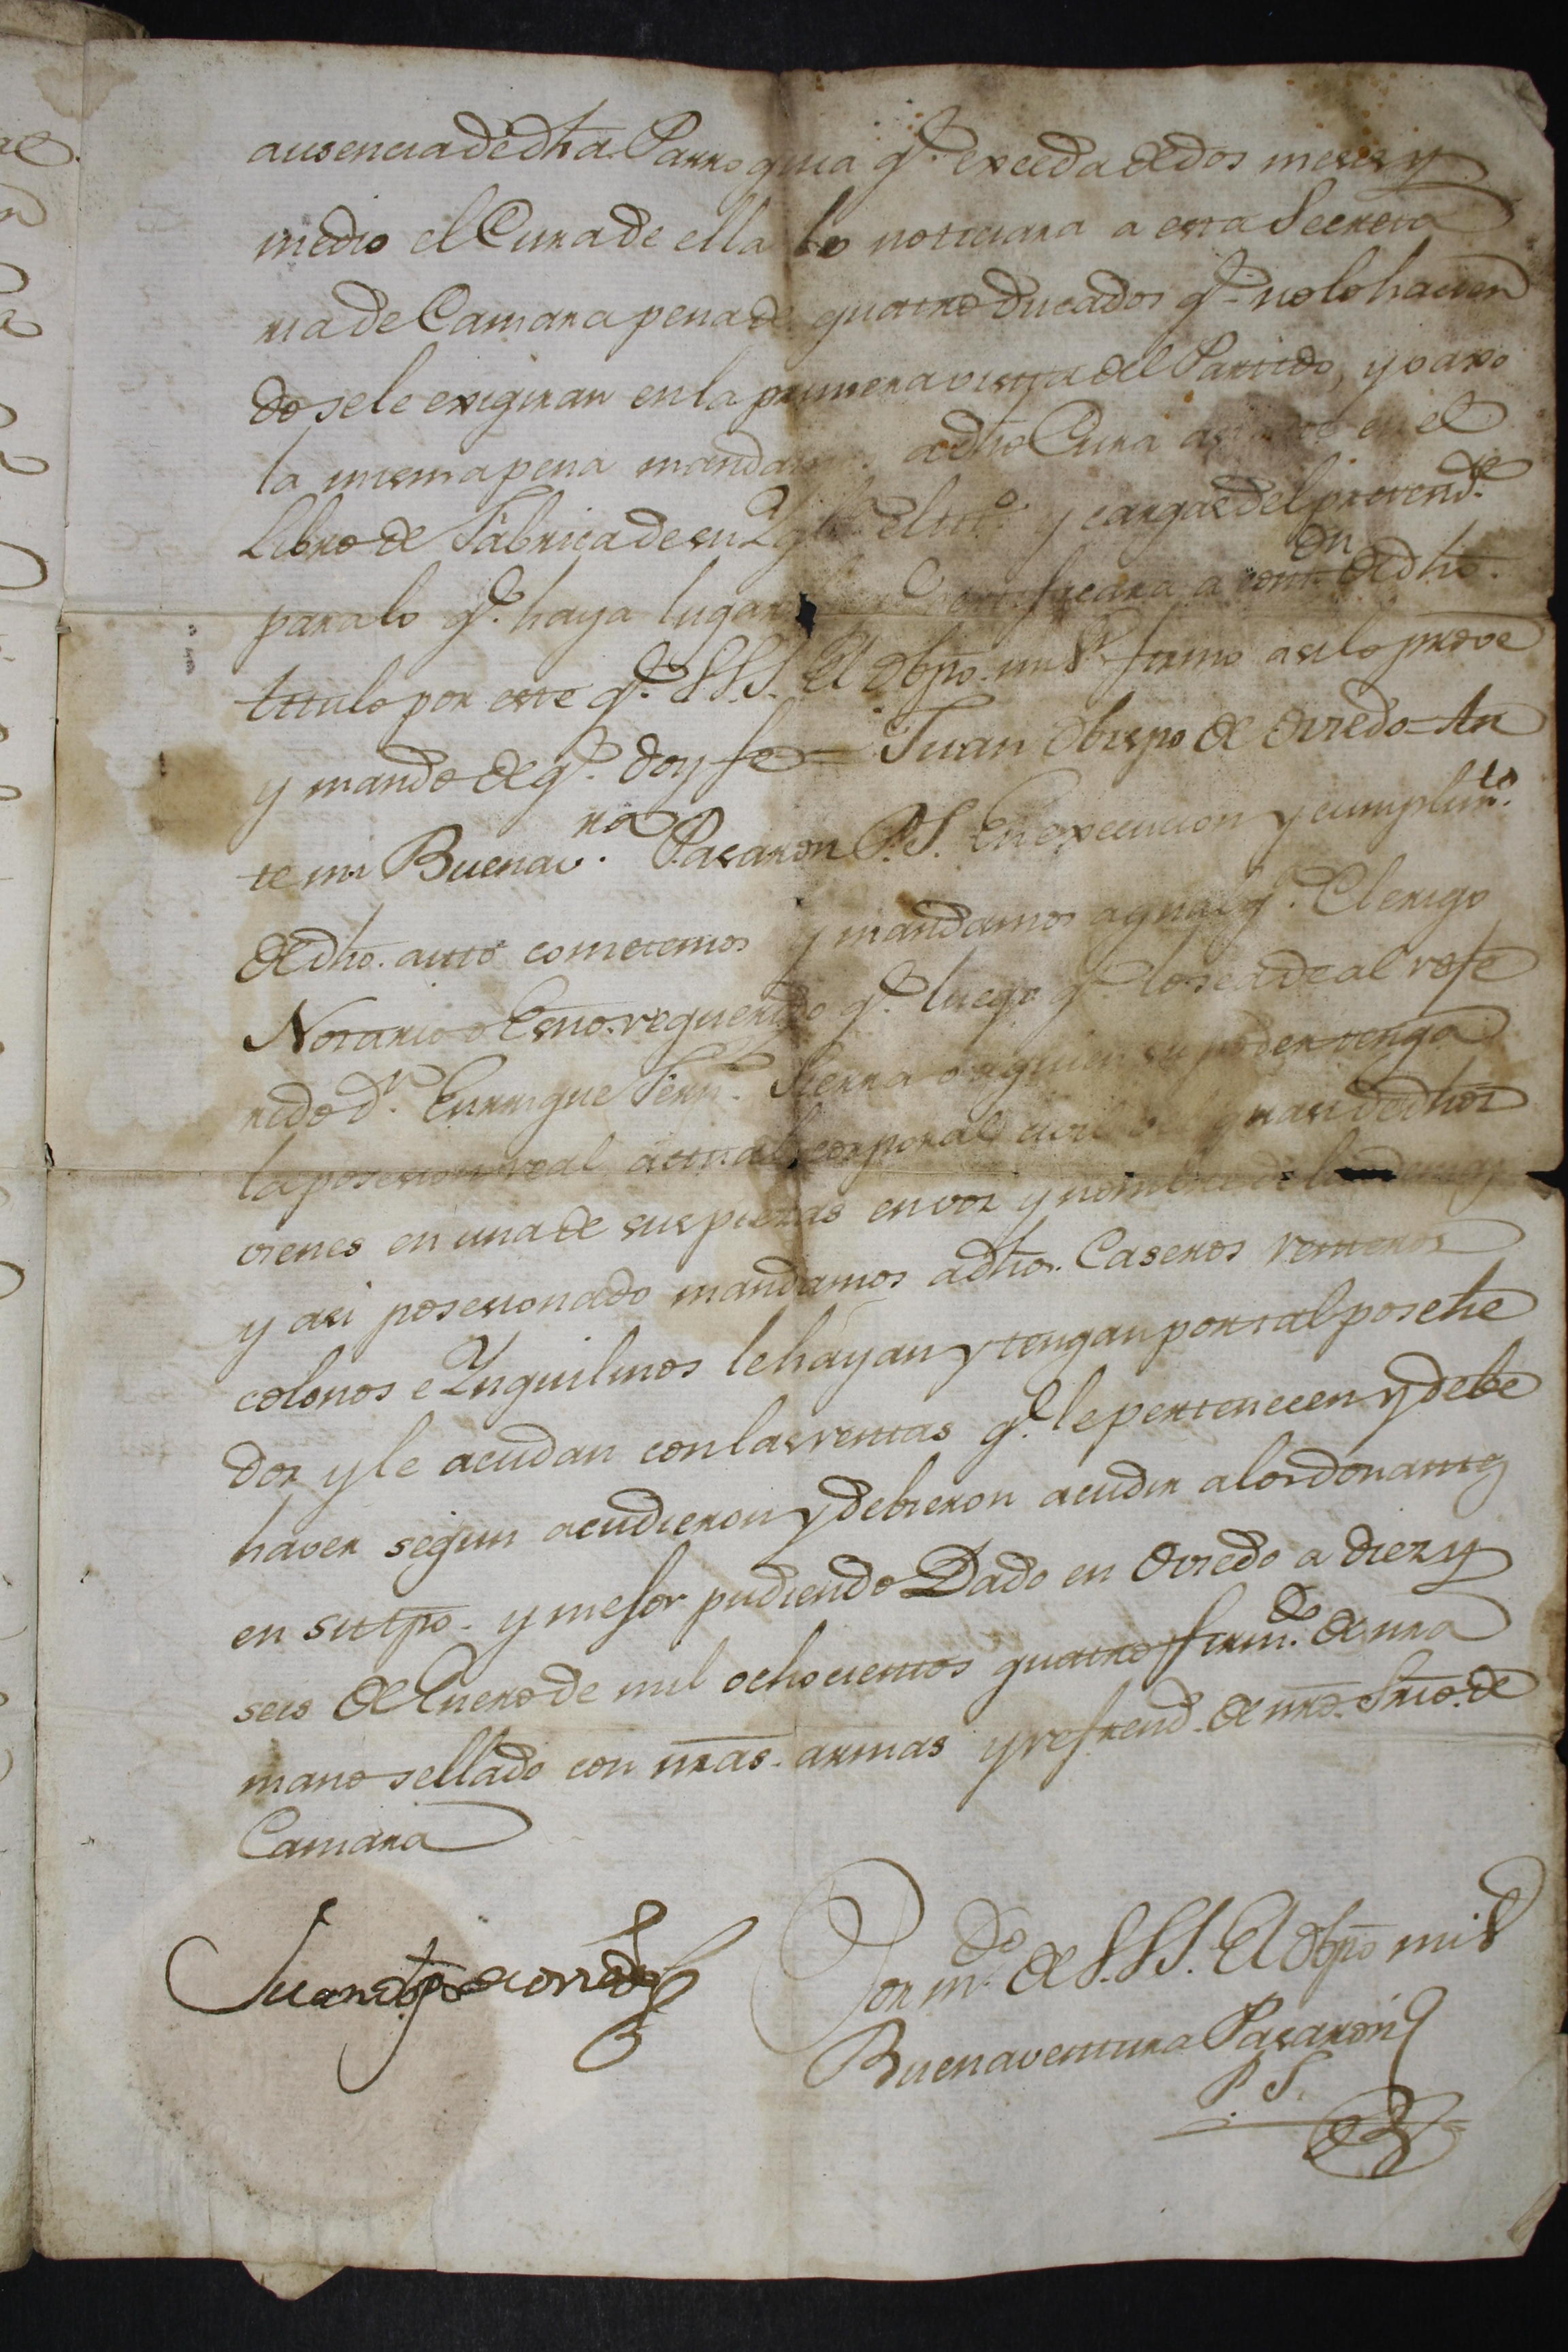 ausencia de dha. Parroquia q.e exceda de dos meses y
medio el Cura de ella lo noticiara a esta Secreta
ria de Camara pena de quatro ducados q.e no lo hacien
do se le exigiran en la primera visita del Partido, y vaxo
la misma pena mandamos a dho Cura en el
Libro de Fabrica de su Ygl.a el tit.o y cargas del prevend.do
para lo q.e haya lugar y certificara a cont.on de dho.
titulo por este q.e S.S.I. El Obpo. mi S.r firmo asi lo prove
y mando de q.e doy fe = Juan Obispo de Oviedo = An
te mi Buenav.ra Pasaron P.S. En execucion y cumplim.to
de dho. auto cometemos y mandamos a qualq.a Clerigo
Notario o Esno. requerido q.e luego q.e lo sea de al refe
rido d.n Enrrique Fern.z Sierra o a quien su poder tenga
la posesion real actual corporal civil vel quasi de dhos
vienes en una de sus piezas en voz y nombre de las demas
y asi posesionado mandamos a dhos. Caseros renteros
colonos e Ynquilinos le hayan y tengan por tal posehe
dor y le acudan con las rentas q.e le pertenecen y debe
haver segun acudieron y debieron acudir a los donantes
en su tpo. y mejor pudiendo Dado en Oviedo a diez y
seis de Enero de mil ochocientos quatro firm.do de nra
mano sellado con nras. armas y refrend.do de nro. Srio. de
Camara
Juan Obpo de Oviedo
Por m.do de S.S.I. El Obpo mi S.r
Buenaventura Pasaron
P.S.